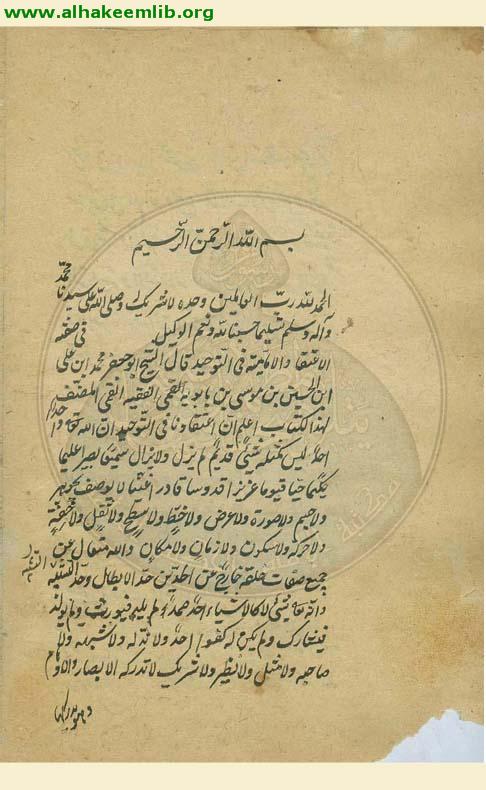 www.alhakeemlib.org
بسم الله الرحمن الرحيم
الحمد لله رب العالمين وحده لا شريك له وصلى الله على سيدنا محمد
وآله وسلم تسليما حسبنا الله ونعم الوكيل في صفة
الاعتقاد الامامية في التوحيد قال الشيخ ابو جعفر محمد ابن علي
ابن الحسين بن موسى بن بابويه القمي الفقيه المصنف
لهذا الكتاب اعلم ان اعتقادنا في التوحيد ان الله تعالى واحد
احد ليس كمثله شيئ قديم لم يزل ولا يزال سميعا بصيرا عليما
حكيما حيا قيوما عزيزا قدوسا قادرا غنيا لا يوصف بجوهر
ولا جسم ولا صورة ولا عرض ولا خط ولا سطح ولا ثقل ولا خفة
ولا حركة ولا سكون ولا زمان ولا مكان والله متعال عن
جميع صفات خلقه خارج عن الحدين حد الابطال وحد التشبيه
وانه تعالى شيئ لا كالاشياء احد صمد لم يلد فيورث ولم يولد
فيشارك ولم يكن له كفوا احد ولا ند له ولا شبه له ولا
صاحبه ولا مثل ولا نظير ولا شريك لا تدركه الابصار والاوهام
وهو يدركها